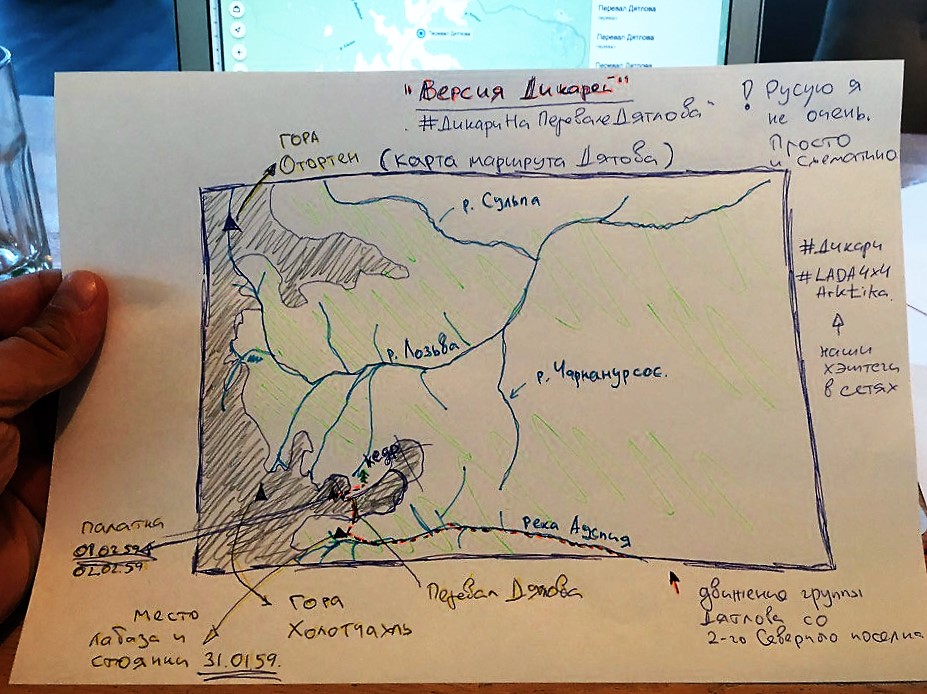 Перевал Дятлова
Перевал Дятлова
Перевал Дятлова
"Версия Дикарей"
#ДикариНаПеревалеДятлова
(карта маршрута Дятова)
! Русую я
не очень.
Просто
и схематично
гора
Отортен
р. Сульпа
#Дикари
#LADA4x4
Arktika.
наши
хэштеги
в сетях
р. Лозьва
р. Чарканурсос.
кедр
палатка
01.02.59
02.02.59
река Ауспия
Перевал Дятлова
гора
Холотчахль
место
лабаза и
стоянки 31.01.59.
движение группы
Дятлова со
2-го Северного поселка